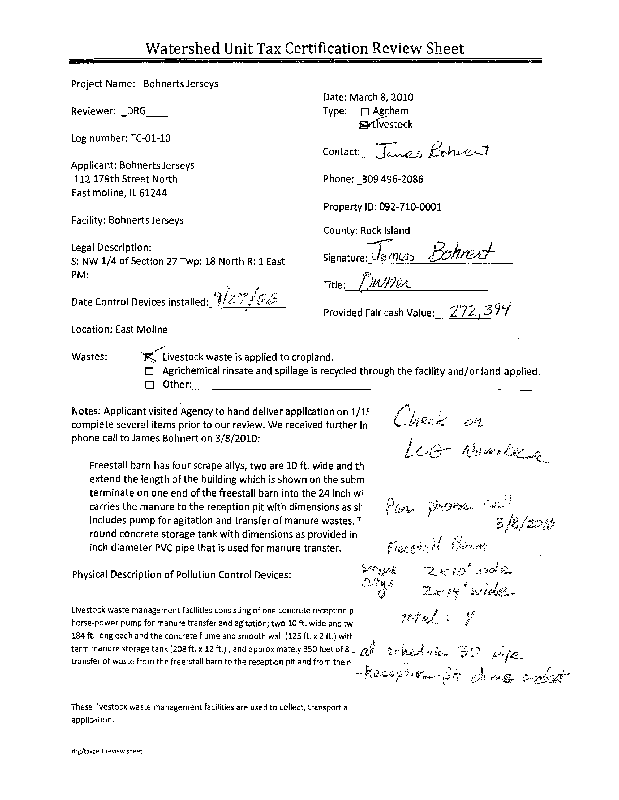 Watershed Unit Tax Certification Review Sheet
Project Name: Bohnerts Jerseys
Date: March 8, 2010
Reviewer: _DRG____
Type: Agchem
Livestock
Log number: TC-01-10
Contact: James Bohnert
Applicant: Bohnerts Jerseys
112 178th Street North
East moline, IL 61244
Phone: 309 496-2086
Property ID: 092-710-0001
Facility: Bohnerts Jerseys
County: Rock Island
Legal Description:
S: NW 1/4 of Section 27 Twp: 18 North R: 1 East
PM:
Signature: James Bohnert
Title: Owner
Date Control Devices installed:
Provided Fair cash Value: 272,394
Location: East Moline
Wastes: Livestock waste is applied to cropland.
Agrichemical rinsate and spillage is recycled through the facility and/or land applied.
Other:
Notes: Applicant visited Agency to hand deliver application on 1/1
complete several items prior to our review. We received further in
phone call to James Bohnert on 3/8/2010:
Check on
LOG Number
Freestall barn has four scrape allys, two are 10 ft. wide and th
extend the length of the building which is shown on the subm
terminate on one end of the freestall barn into the 24 inch wi
carries the manure to the reception pit with dimensions as sh
includes pump for agitation and transfer of manure wastes. T
round concrete storage tank with dimensions as provided in
inch diameter PVC pipe that is used for manure transfer.
Per phone call
3/8/2010
Freestall Barn
Physical Description of Pollution Control Devices:
scrape allys 2x10' wide
2x14' wide
total: 4
Livestock waste management facilities consisting of one concrete reception p
horse-power pump for manure transfer and agitation; two 10 ft. wide and tw
184 ft. long each and the concrete flume and smooth wall (125 ft. x 2 ft.) with
term manure storage tank (208 ft. x 12 ft.), and approximately 350 feet of 8
transfer of waste from the freestall barn to the reception pit and from the r
of schedule 30 pipe
-Reception pit dims
These livestock waste management facilities are used to collect, transport a
application.
drg/taxcert review sheet